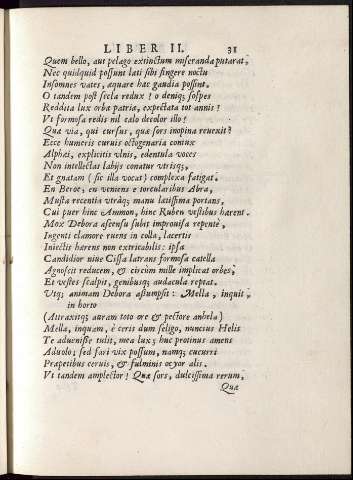 LIBER II. 31
Quem bello, aut pelago extinctum miseranda putarat,
Nec quidquid possunt lati sibi fingere noctu
Insomnes vates, æquare hac gaudia possint.
O tandem post secla redux! o deniq; sospes
Reddita lux orbæ patria, expectata tot annis!
Vt formosa redis nil calo decolor illo!
Quæ via, qui cursus, quæ sors inopina reuexit?
Ecce humeris curuis octogenaria coniux
Alphæi, explicitis vlnis, edentula voces
Non intellectas labijs conatur vtrisq;
Et gnatam (sic illa vocat) complexa fatigat.
En Beroe; en veniens e torcularibus Abra,
Musta recentia vtràq; manu latissima portans,
Cui puer hinc Ammon, hinc Ruben vestibus hærent.
Mox Debora ascensu subit improuisa repentè,
Ingenti clamore ruens in colla, lacertis
Iniectis hærens non extricabilis: ipsa
Candidior niue Cissa latrans formosa catella
Agnoscit reducem, & circùm mille implicat orbes,
Et vestes scalpit, genibusq; audacula repat.
Vtq; animam Debora assumpsit: Mella, inquit,
in horto
(Attraxitq; auram toto ore & pectore anhela)
Mella, inquam, è ceris dum seligo, nuncius Helis
Te aduenisse tulit, mea lux; huc protinus amens
Aduolo; sed fari vix possum, namq; cucurri
Præpetibus ceruis, & fulminis ocyor alis.
Vt tandem amplector! Quæ sors, dulcissima rerum,
Quæ